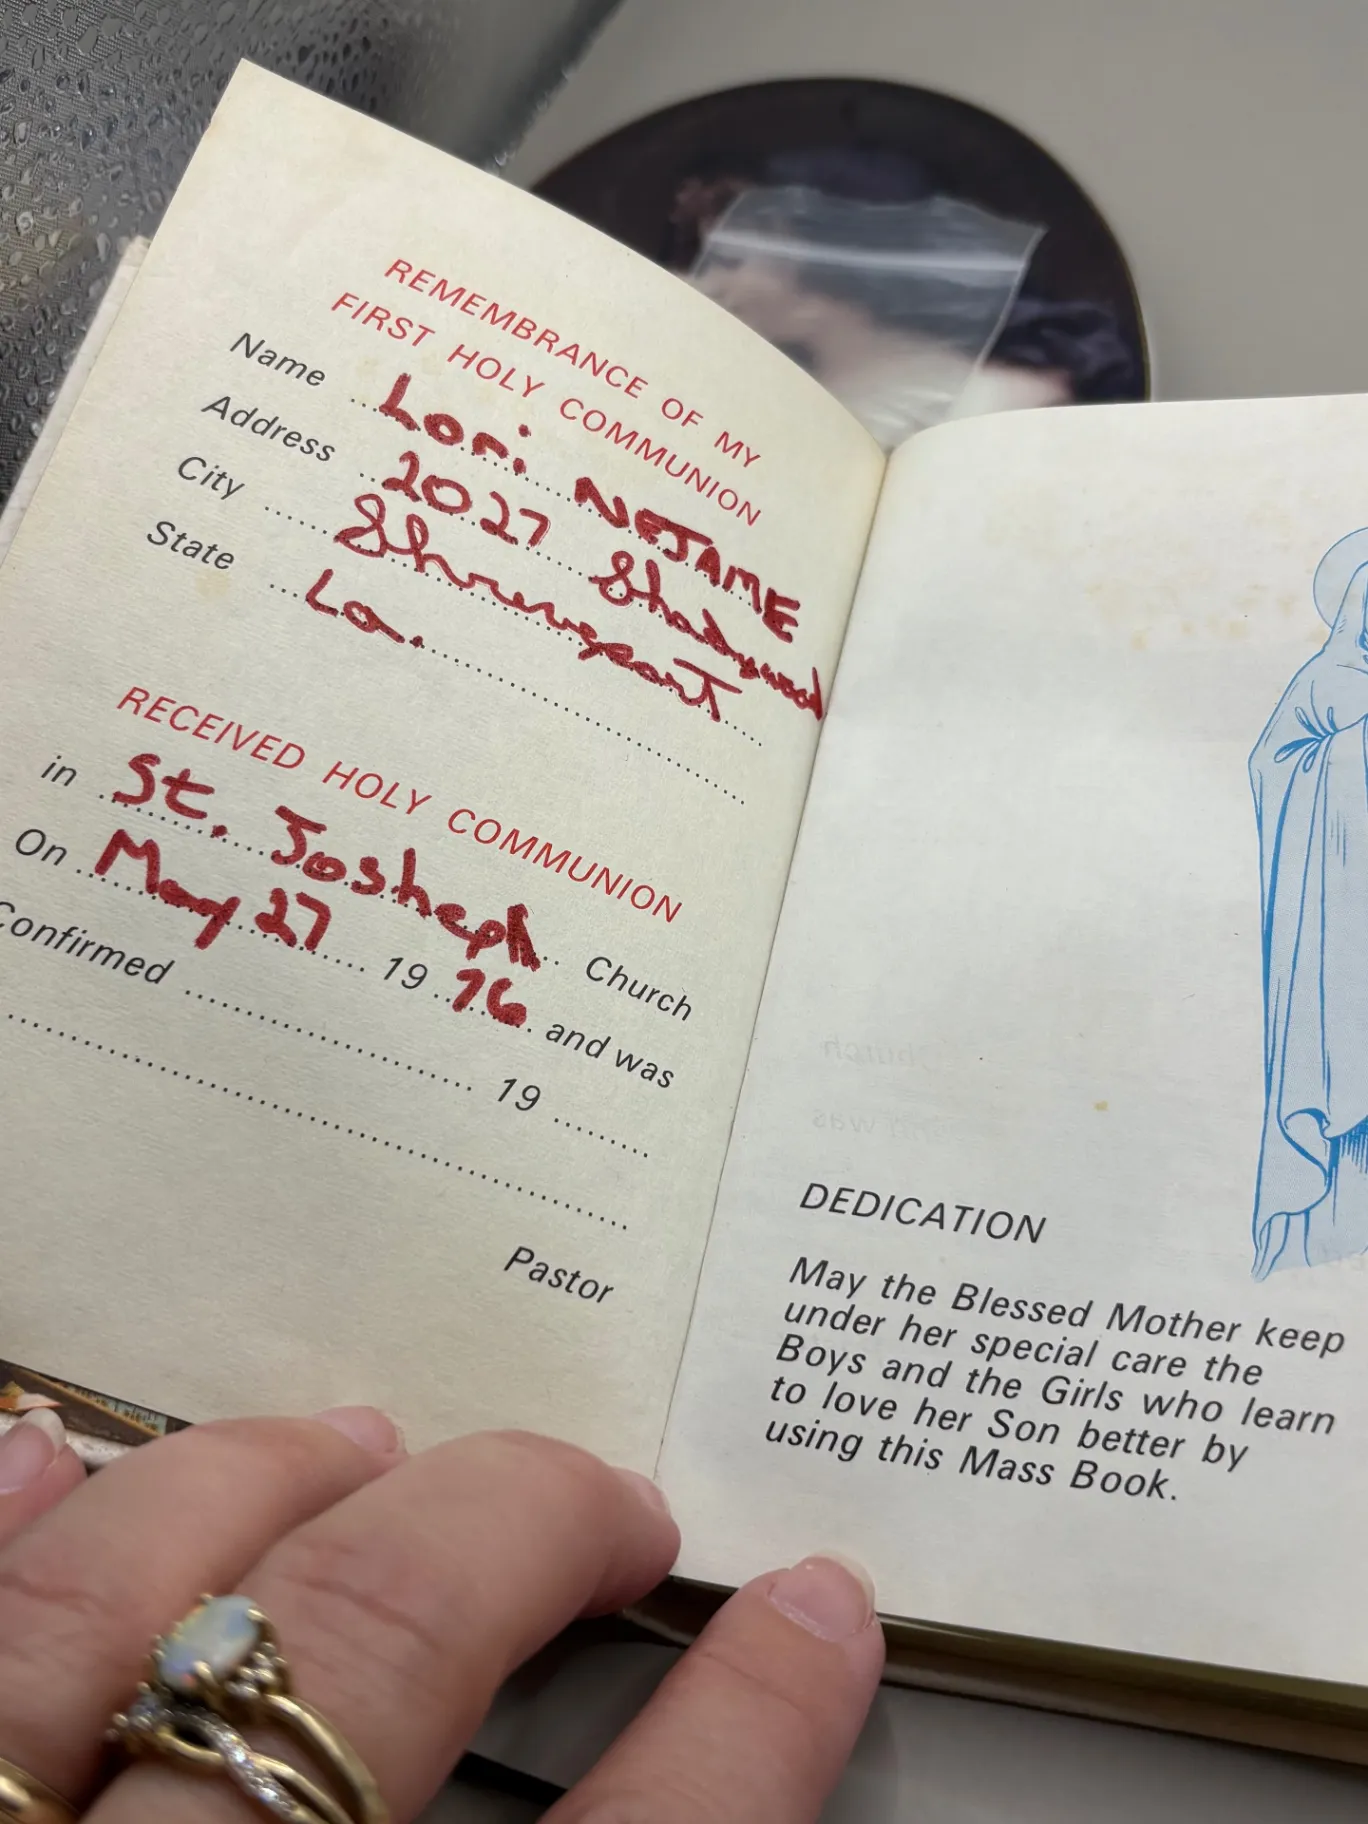 REMEMBRANCE OF MY
FIRST HOLY COMMUNION
Name Lori NEJAME
Address 2027 Shadywood
City Shreveport
State La.
RECEIVED HOLY COMMUNION
in St. Josheph Church
On May 27 1976 and was
Confirmed 19
Pastor
DEDICATION
May the Blessed Mother keep
under her special care the
Boys and the Girls who learn
to love her Son better by
using this Mass Book.